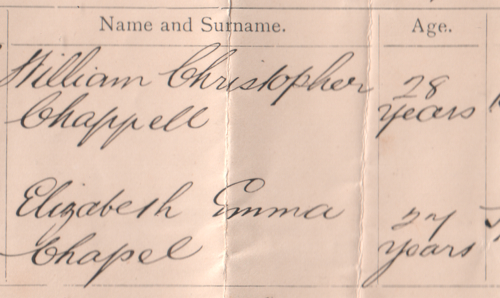 Name and Surname. Age.
William Christopher 28
Chappell years
Elizabeth Emma 27
Chapel years